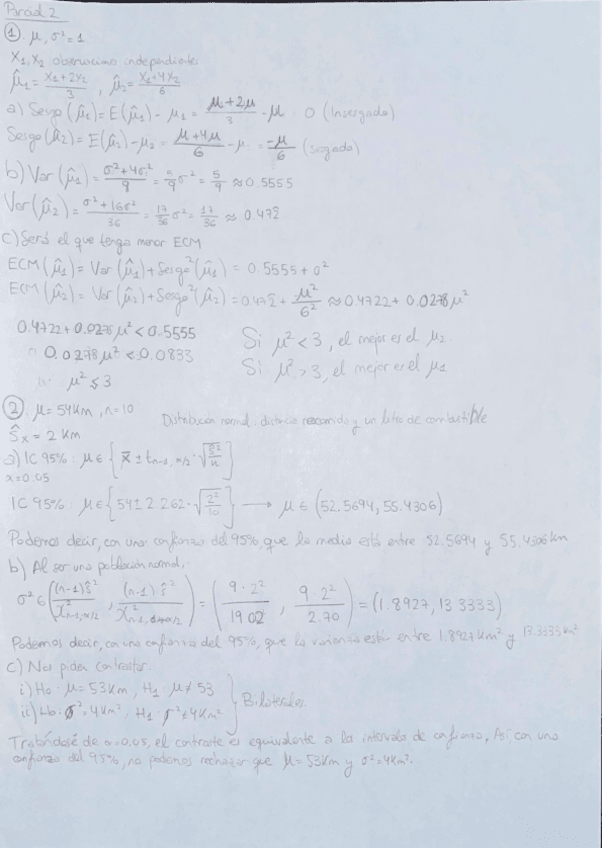 Parcial 2
① . μ, σ²=1
X₁, X₂ observaciones independientes
μ̂₁ = (X₁+2X₂)/3 , μ̂₂ = (X₁+4X₂)/6
a) Sesgo(μ̂₁) = E(μ̂₁) - μ₁ = (μ+2μ)/3 - μ = 0 (Insesgado)
Sesgo(μ̂₂) = E(μ̂₂) - μ₂ = (μ+4μ)/6 - μ = -μ/6 (sesgado)
b) Var(μ̂₁) = (σ²+4σ²)/9 = 5/9 σ² = 5/9 ≈ 0.5555
Var(μ̂₂) = (σ²+16σ²)/36 = 17/36 σ² = 17/36 ≈ 0.472
c) Será el que tenga menor ECM
ECM(μ̂₁) = Var(μ̂₁) + Sesgo²(μ̂₁) = 0.5555 + 0²
ECM(μ̂₂) = Var(μ̂₂) + Sesgo²(μ̂₂) = 0.472 + μ²/6² ≈ 0.4722 + 0.0278μ²
0.4722 + 0.0278μ² < 0.5555
0.0278μ² < 0.0833
μ² ≤ 3
Si μ² < 3, el mejor es el μ₂.
Si μ² > 3, el mejor es el μ₁
② . μ = 54km, n=10
Distribución normal: distancia recorrida y un litro de combustible
Ŝx = 2 km
a) IC 95% : μ ∈ { x̄ ± t n-1, α/2 · √(ŝ²/n) }
α=0.05
IC 95% : μ ∈ { 54 ± 2.262 · √(2²/10) } ⟶ μ ∈ (52.5694, 55.4306)
Podemos decir, con una confianza del 95%, que la media está entre 52.5694 y 55.4306km
b) Al ser una población normal,
σ² ∈ ( (n-1)ŝ²/χ²n-1,α/2 , (n-1)ŝ²/χ²n-1,1-α/2 ) = ( 9·2²/19.02 , 9·2²/2.70 ) = (1.8927, 13.3333)
Podemos decir, con una confianza del 95%, que la varianza está entre 1.8927km² y 13.3333km²
c) Nos piden contrastar:
i) H₀: μ = 53km, H₁ μ ≠ 53
ii) H₀: σ² = 4km², H₁ σ² ≠ 4km²
} Bilaterales
Tratándose de α=0.05, el contraste es equivalente a la intervalo de confianza, Así con una
confianza del 95%, no podemos rechazar que μ = 53km y σ² = 4km².